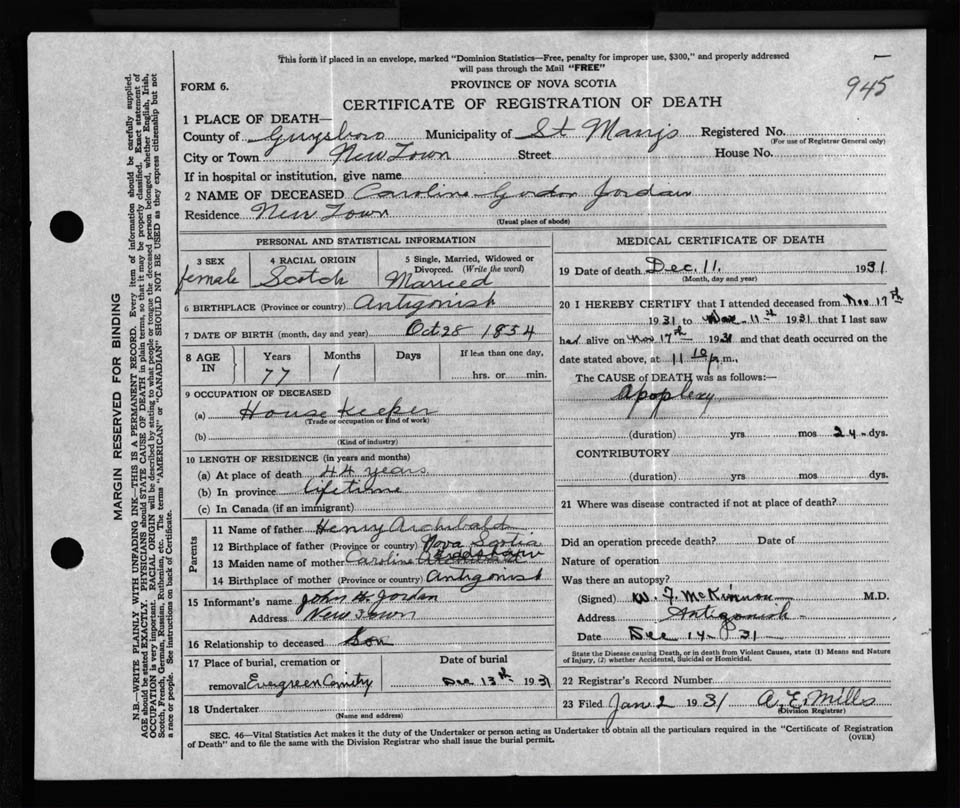 This form if placed in an envelope, marked "Dominion Statistics—Free, penalty for improper use, $300," and properly addressed
will pass through the Mail "FREE"
945
FORM 6.
PROVINCE OF NOVA SCOTIA
CERTIFICATE OF REGISTRATION OF DEATH
1 PLACE OF DEATH—
County of Guysboro Municipality of St Mary's Registered No.
(For use of Registrar General only)
City or Town New Town Street House No.
If in hospital or institution, give name
2 NAME OF DECEASED Caroline Gordon Jordan
Residence New Town
(Usual place of abode)
PERSONAL AND STATISTICAL INFORMATION
3 SEX 4 RACIAL ORIGIN 5 Single, Married, Widowed or
Divorced. (Write the word)
female Scotch Married
6 BIRTHPLACE (Province or country) Antigonish
7 DATE OF BIRTH (month, day and year) Oct 28 1854
8 AGE IN Years Months Days If less than one day,
77 1 hrs. or min.
9 OCCUPATION OF DECEASED
(a) House Keeper
(Trade or occupation or kind of work)
(b)
(Kind of industry)
10 LENGTH OF RESIDENCE (in years and months)
(a) At place of death 44 years
(b) In province Lifetime
(c) In Canada (if an immigrant)
Parents
11 Name of father Henry Archibald
12 Birthplace of father (Province or country) Nova Scotia
13 Maiden name of mother Caroline
14 Birthplace of mother (Province or country) Antigonish
15 Informant's name John H. Jordan
Address New Town
16 Relationship to deceased Son
17 Place of burial, cremation or Date of burial
removal Evergreen Cemitry Dec 13th 1931
18 Undertaker
(Name and address)
MEDICAL CERTIFICATE OF DEATH
19 Date of death Dec. 11. 1931
(Month, day and year)
20 I HEREBY CERTIFY that I attended deceased from Nov 17th
1931 to Dec 11th 1931 that I last saw
her alive on Nov 17th 1931 and that death occurred on the
date stated above, at 11 10 p.m.,
The CAUSE of DEATH was as follows:—
Apoplexy
(duration) yrs mos 24 dys.
CONTRIBUTORY
(duration) yrs mos dys.
21 Where was disease contracted if not at place of death?
Did an operation precede death? Date of
Nature of operation
Was there an autopsy?
(Signed) W. F. McKinnon M.D.
Address Antigonish
Date Dec 14 - 31
State the Disease causing Death, or in death from Violent Causes, state (1) Means and Nature
of Injury, (2) whether Accidental, Suicidal or Homicidal.
22 Registrar's Record Number
23 Filed Jan 2 1931 A. E. Mills
(Division Registrar)
SEC. 46—Vital Statistics Act makes it the duty of the Undertaker or person acting as Undertaker to obtain all the particulars required in the "Certificate of Registration
of Death" and to file the same with the Division Registrar who shall issue the burial permit. (OVER)
MARGIN RESERVED FOR BINDING
N.B.—WRITE PLAINLY WITH UNFADING INK—THIS IS A PERMANENT RECORD. Every item of information should be carefully supplied.
AGE should be stated EXACTLY. PHYSICIANS should STATE CAUSE OF DEATH in plain terms, so that it may be properly classified. Exact statement of
OCCUPATION is very important. RACIAL ORIGIN will be described by stating to what people or tongue the deceased person belonged, whether English, Irish,
Scotch, French, German, Russian, Ruthenian, etc. The terms "AMERICAN" or "CANADIAN" SHOULD NOT BE USED as they express citizenship but not
a race or people. See instructions on back of Certificate.